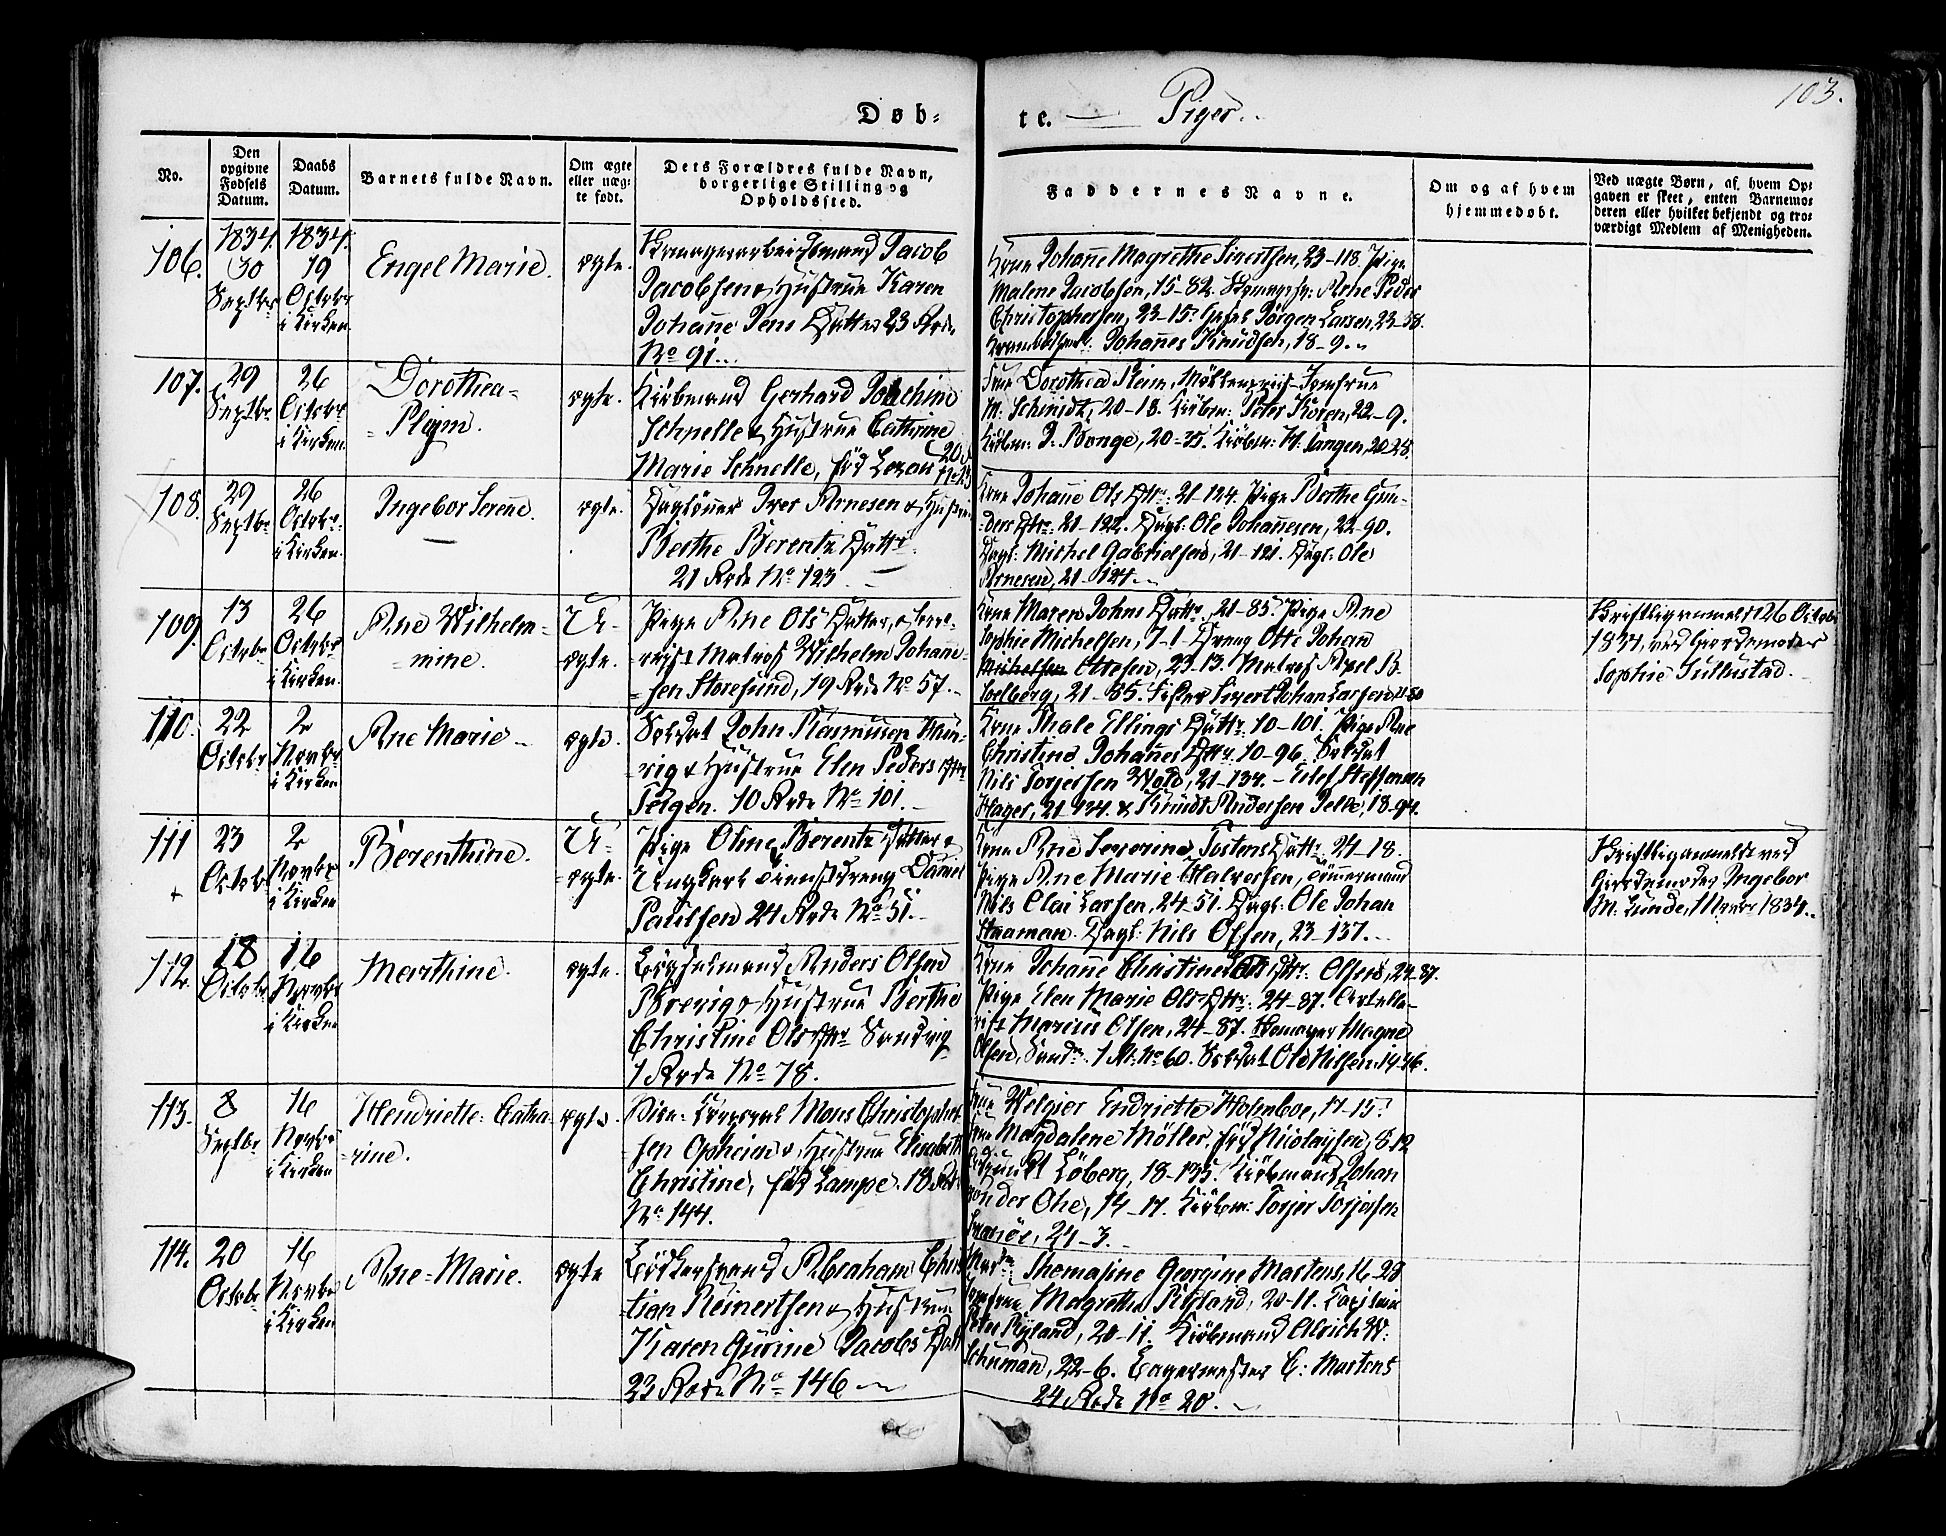 103.
Døb-te. Piger.
No.
Den opgivne Fødsels Datum.
Daabs Datum.
Barnets fulde Navn.
Om ægte eller uægte født.
Dets Forældres fulde Navn, borgerlige Stilling og Opholdssted.
Faddernes Navne.
Om og af hvem hjemmedøbt.
Ved uægte Børn, af hvem Opgaven er skeet, enten Barnemoderen eller hvilket bekjendt og troværdigt Medlem af Menigheden.
106.
1834.
30
Septbr
1834.
19
Octobr
i Kirken.
Engel Marie.
ægte.
Jacob
Jacobsen & Hustrue Karen
Johanne Jens Datter 23 Rode
No 91.
Kone Johanne Magrethe Sivertsen, 23-118. Pige
Malene Jacobsen, 15-82. Arne Peder
Christophersen, 23-15. Jørgen Larsen, 23-58.
Johannes Knudsen, 18-9.
107.
29
Septbr
26
Octobr
i Kirken.
Dorothea
Plejm.
ægte.
Kiøbmand Gerhard Joachim
Schnelle & Hustrue Cathrine
Marie Schnelle, fød 20 R
No 23
Frue Dorothea Jomfrue
M: Schmidt, 20-18. Kiøbm: Peter Koren, 22-9.
Kiøbm: D. Bonge, 20-35. Kiøbm: H. Jangen, 20-28.
108.
29
Septbr
26
Octobr
i Kirken.
Ingebor Serene.
ægte.
Dagløner Iver Arnesen & Hustrue
Berthe Berentz Dattr
21 Rode No 123.
Kone Johanne Ols Dttr: 21-124. Pige Berthe Gun-
ders Dttr. 21-122. Dagl: Ole Johannesen, 22-90.
Dagl: Michel Gabrielsen, 21-121. Dagl: Ole
Arnesen, 21-124.
109.
13
Octobr
26
Octobr
i Kirken.
Ane Wilhelm-
=mine.
U-
=ægte.
Pige Ane Ols Datter, &
Matros Wilhelm Johanne-
=sen Storesund, 19 Rode No 57.
Kone Maren Johns Dattr, 21-85. Pige Ane
Sophie Michelsen, 7-1. Dreng Otte Johan
Michelsen Ottesen, 23-13. Matros Axel B.
Soelberg, 21-85. Fisker Sivert Johan Larsen, 21-80
Skriftlig anmeldt 26 Octobr
1834, ved Giordemoder
Sophie Tullustad.
110.
22
Octobr
2
Novbr
i Kirken
Ane Marie
ægte.
Soldat John Rasmusen
& Hustrue Elen Peders Dttr
10 Rode No 101.
Kone Thale Ellings Dattr: 10-101. Pige Ane
Christine Johannes Dttr. 10-96. Soldat
Nils Torjersen Wold, 21-134. Steffensen
Hager, 21-124. & Knudt Andersen Pelle, 18-94.
111
+
23
Octobr
2
Novbr
i Kirken
Berenthine.
U-
=ægte.
Pige Oline Berentz Datter &
Ungkarl Tienstdreng Daniel
Paulsen 24 Rode No 51.
Kone Ane Severine Tostens Dattr: 24-18.
Pige Ane Marie Halvorsen, Tømermand
Nils Olai Larsen, 24-51. Dagl: Ole Johan
Staaman. Dagl: Nils Olsen, 23-137.
Skriftlig anmeldt ved
Giordemoder Ingebor
M. Lunde, 1 Novbr 1834.
112
18
Octobr
16
Novbr
i Kirken
Marthine.
ægte.
Anders Olsen
Brevig & Hustrue Berthe
Christine Ols Dttr Sandvig
1 Rode No 78.
Kone Johanne Christine Ols Dttr: Olsen, 24-87.
Pige Elen Marie Ols Dttr: 24-87. Artille-
rist Marius Olsen, 24-87. Magne
Olsen, Sandv. 1 R. No 60. Soldat Ole Nilsen, 14-46.
113.
8
Septbr
16
Novbr
i Kirken
Hendriette: Catha-
=rine.
ægte.
Mons Christopher-
sen Opheim & Hustrue Elisabeth
Christine, fød Lampe. 18 Rode
No 144.
Frue Welgier Endriette Holmboe, 17-15.
Frue Magdalene Møller fød Nicolaysen, 8-12
Løberg, 18-135. Kiøbmand Johan
von der Ohe, 14-17. Kiøbm: Torjer Torjersen
Svanøe, 21-3.
114.
20
Octobr
16
Novbr
i Kirken
Ane=Marie.
ægte
Bødkersvend Abraham Chris-
tian Reinertsen & Hustrue
Karen Gurine Jacobs Datt
23 Rode No 146
Mad: Thomasine Georgine Martens, 16-28
Jomfrue Magrethe Ryland, 20-11.
Peter Ryland, 20-11. Kiøbmand Ulrich W:
Schuman, 22-6. Bagermester C: Martens
24 Rode No 20.